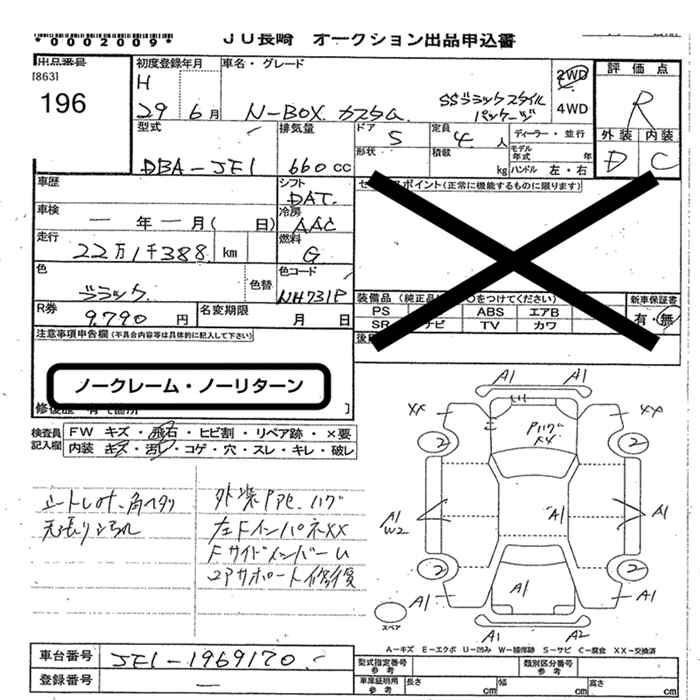 *0002009*
JU長崎 オークション出品申込書
出品番号
[863]
196
初度登録年月
H
29 6月
車名・グレード
N-BOX カスタム SSブラックスタイルパッケージ
2WD
4WD
評価点
R
外装 内装
D C
型式
DBA-JF1
排気量
660cc
ドア 5
定員 4人
ディーラー・並行
形状
積載 kg
モデル年式 年
ハンドル 左・右
車歴
シフト
DAT
車検
ー年ー月( 日)
冷房
AAC
走行
22万1千388 km
燃料
G
色
ブラック
色替
色コード
NH731P
R券
9,790 円
名変期限 月 日
セ ポイント(正常に機能するものに限ります)
装備品(純正品 ○をつけてください)
PS ABS エアB
SR ナビ TV カワ
新車保証書
有・無
注意事項申告欄(不具合内容等は具体的に記入して下さい)
ノークレーム・ノーリターン
検査員記入欄
FW キズ・飛石・ヒビ割・リペア跡・×要
内装 キズ・汚レ・コゲ・穴・スレ・キレ・破レ
外装
左FインパネXX
Fサイドメンバー
コアサポート修復
A1 A1
XX XX
2 2
A1
W2
A1
A1
2 2
A1
A1
A1
A1 A2
スペア
A-キズ E-エクボ U-凹み W-補修跡 S-サビ C-腐食 XX-交換済
車台番号
JF1-1969170
登録番号
ー
型式指定番号 参考
類別区分番号 参考
車庫証明用 参考
長さ cm 幅 cm 高さ cm